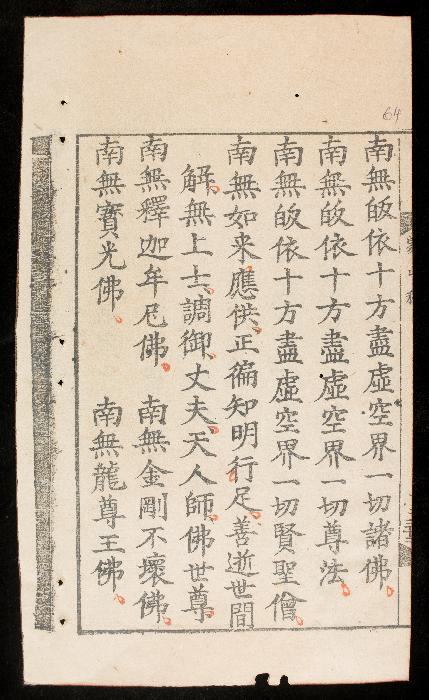 64
南無皈依十方盡虛空界一切諸佛
南無皈依十方盡虛空界一切尊法
南無皈依十方盡虛空界一切賢聖僧
南無如来應供正徧知明行足善逝世間
解無上士調御丈夫天人師佛世尊
南無釋迦牟尼佛 南無金剛不壞佛
南無寶光佛 南無龍尊王佛